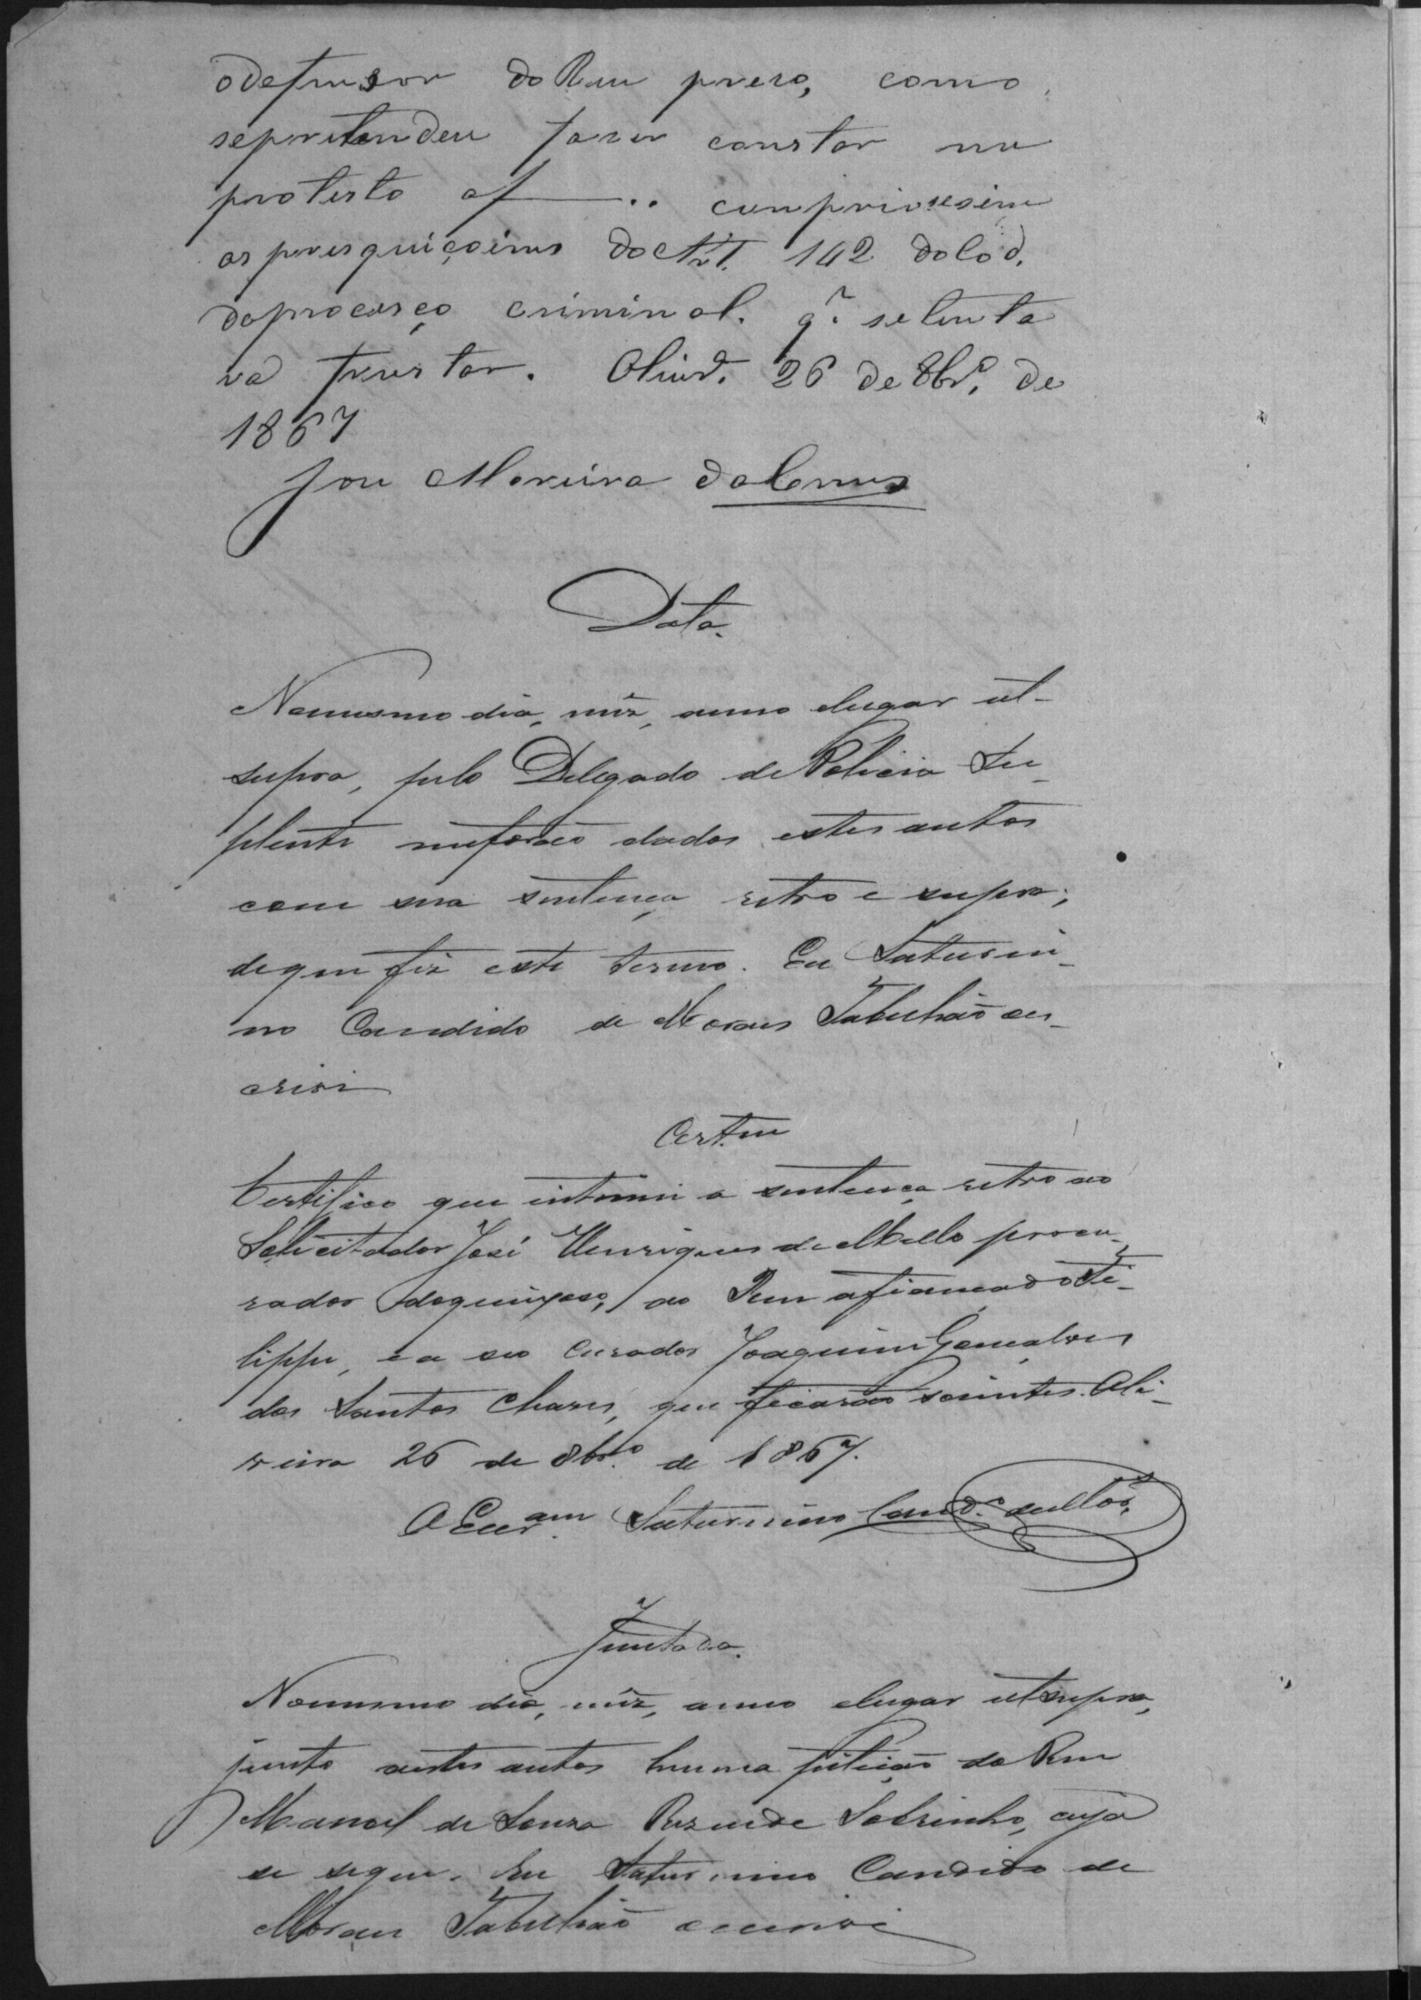 odefensor do Reu preso, como
sepretendeu faser constar no
protesto af ——.. cumprissem
as presquiçoins do Art. 142 do Cod.
do proceço criminal. q.r setenta
va frustar. Olivr.a 26 de 8br.o de
1867
José Moreira da
Data.
Nomesmo dia, mez, anno elugar ut-
supra, pelo Delegado de Policia Su-
plente me forão dados estes autos
com sua sentença retro e supra;
dequem fiz este termo. Eu Saturni-
no Candido de Moraes Tabelhão es-
crivi
Cert.m
Certifico que intimei a sentença retro ao
Solicitador José Henriques de Mello procu-
rador doqueixoso, ao Reu afiançado Fi-
lippe, e a seo Curador Joaquim Gonçalves
dos Santos Chaves, que ficarão scientes. Oli-
veira 26 de 8br.o de 1867.
O Escr.am Saturnino Cand.o de Mor.s
Juntada.
Nomesmo dia, mez, anno elugar utsupra,
junto aestes autos huma petição do Reu
Manoel de Souza Rezende Sobrinho, cuja
se segue. Eu Saturnino Candido de
Moraes Tabelhão escrivi